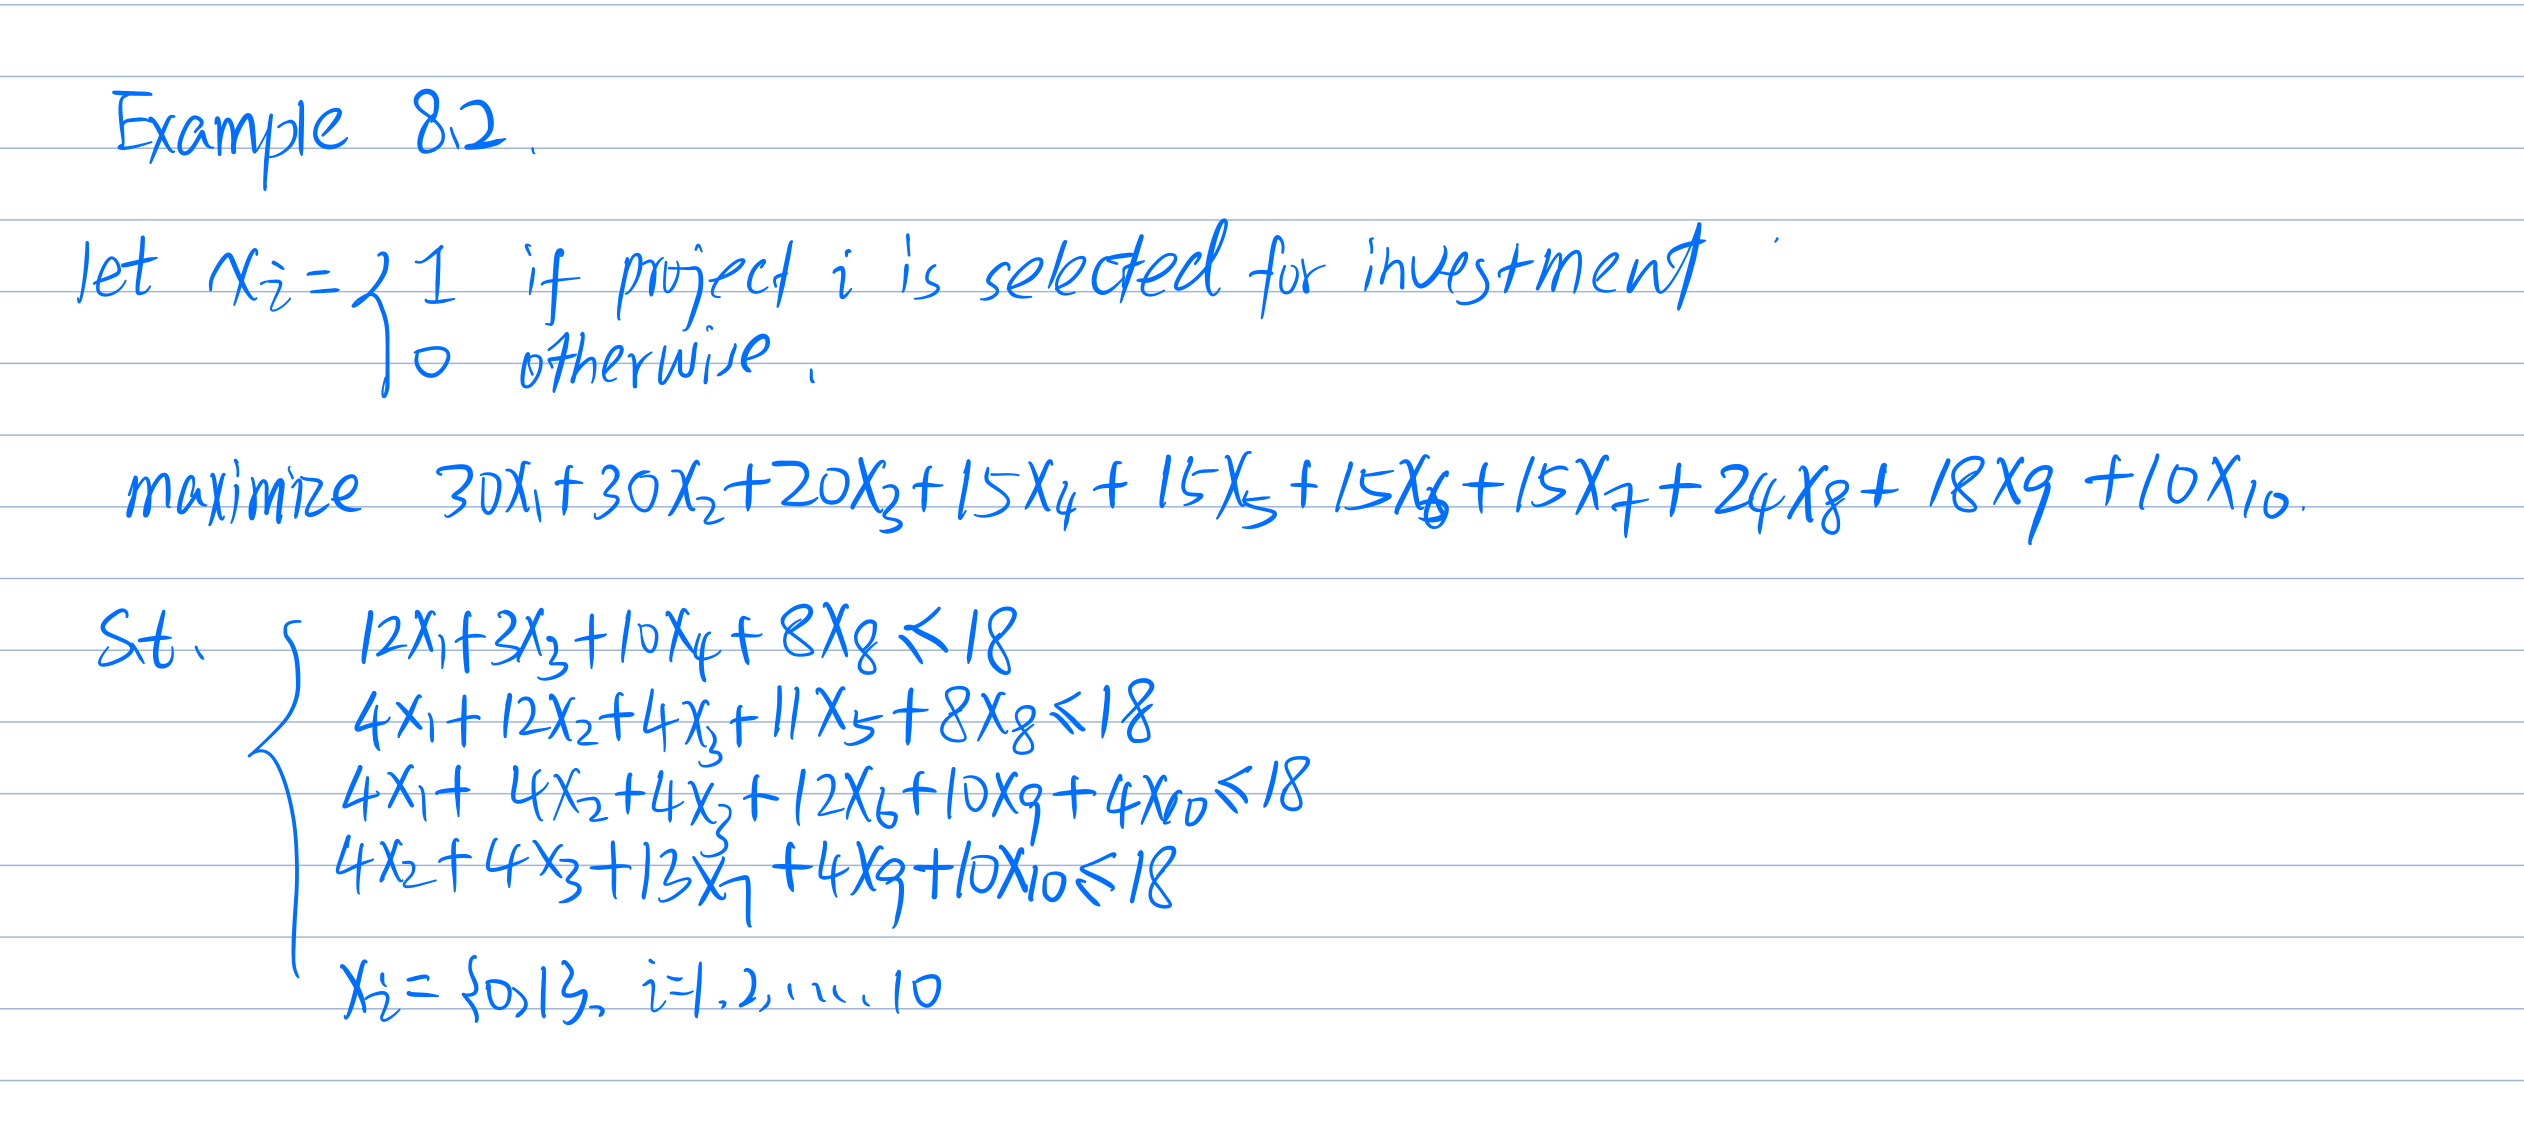 Example 8.2.
let xᵢ = { 1 if project i is selected for investment
0 otherwise.
maximize 30x₁+30x₂+20x₃+15x₄+15x₅+15x₆+15x₇+24x₈+18x₉+10x₁₀.
St. { 12x₁+3x₃+10x₄+8x₈≤18
4x₁+12x₂+4x₃+11x₅+8x₈≤18
4x₁+4x₂+4x₃+12x₆+10x₉+4x₁₀≤18
4x₂+4x₃+13x₇+4x₉+10x₁₀≤18
xᵢ={0,1}, i=1,2,.....10